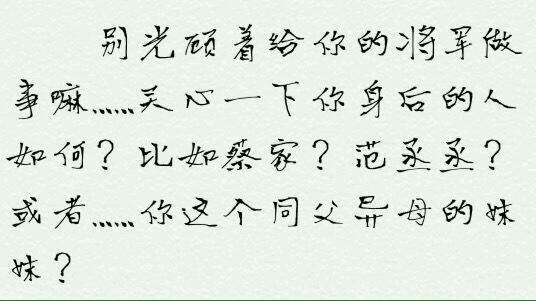 别光顾着给你的将军做
事嘛……关心一下你身后的人
如何？比如蔡家？范丞丞？
或者……你这个同父异母的妹
妹？